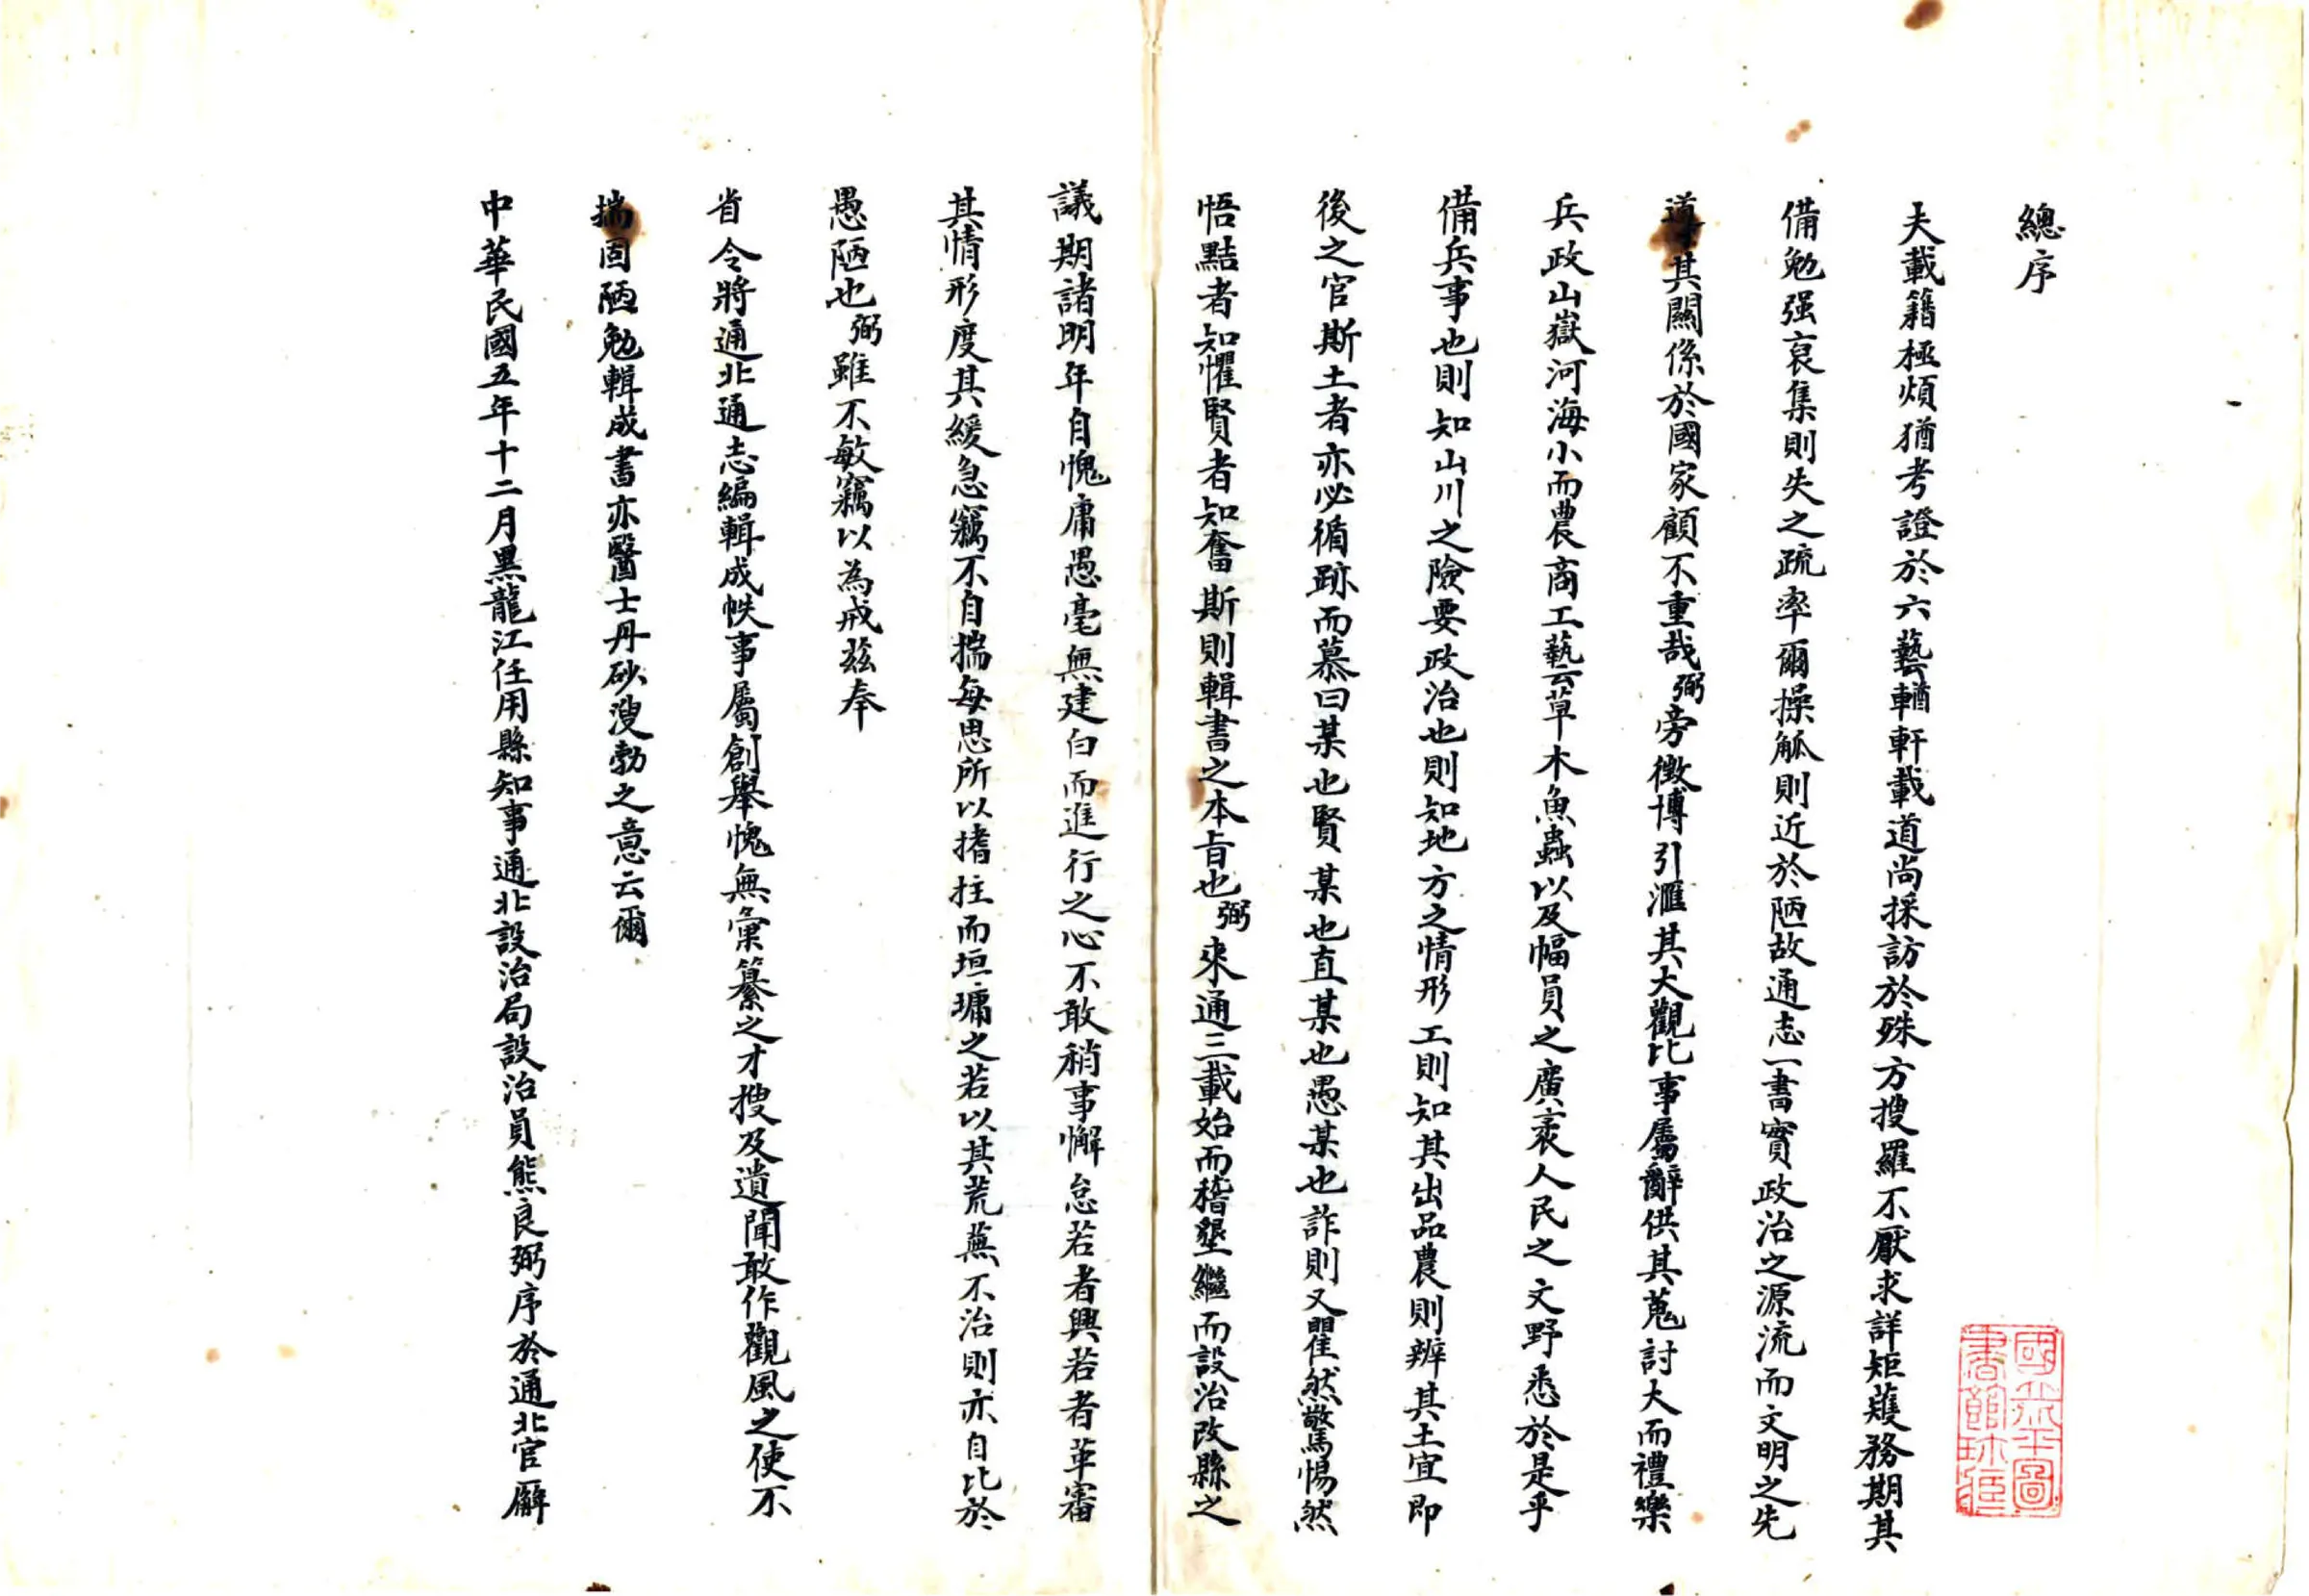 總序
夫載籍極煩猶考證於六藝輶軒載道尚採訪於殊方搜羅不厭求詳矩蒦務期其
備勉强裒集則失之疏率爾操觚則近於陋故通志一書實政治之源流而文明之先
導其關係於國家顧不重哉弼旁徵博引滙其大觀比事屬辭供其蒐討大而禮樂
兵政山嶽河海小而農商工藝草木魚蟲以及幅員之廣袤人民之文野悉於是乎
備兵事也則知山川之險要政治也則知地方之情形工則知其出品農則辨其土宜即
後之官斯土者亦必循跡而慕曰某也賢某也直某也愚某也詐則又瞿然驚惕然
悟黠者知懼賢者知奮斯則輯書之本旨也弼來通三載始而稽墾繼而設治改縣之
議期諸明年自愧庸愚毫無建白而進行之心不敢稍事懈怠若者興若者革審
其情形度其緩急竊不自揣每思所以搘拄而垣墉之若以其荒蕪不治則亦自比於
愚陋也弼雖不敏竊以為戒茲奉
省令將通北通志編輯成帙事屬創舉愧無彙纂之才搜及遺聞敢作觀風之使不
揣固陋勉輯成書亦醫士丹砂溲勃之意云爾
中華民國五年十二月黑龍江任用縣知事通北設治局設治員熊良弼序於通北官廨